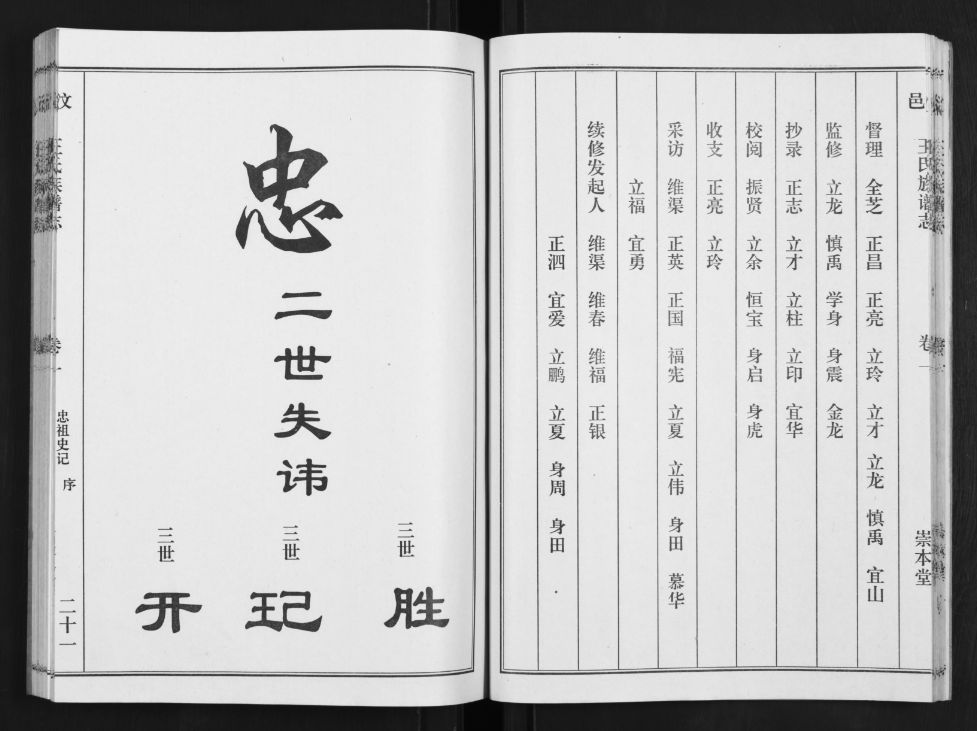 邑
王氏族谱志
卷一
崇本堂
督理 全芝 正昌 正亮 立玲 立才 立龙 慎禹 宜山
监修 立龙 慎禹 学身 身震 金龙
抄录 正志 立才 立柱 立印 宜华
校阅 振贤 立余 恒宝 身启 身虎
收支 正亮 立玲
采访 维渠 正英 正国 福宪 立夏 立伟 身田 慕华
立福 宜勇
续修发起人 维渠 维春 维福 正银
正泗 宜爱 立鹏 立夏 身周 身田
忠
二世失讳
三世 胜
三世 玘
三世 开
汶
王氏族谱志
卷一
忠祖史记 序
二十一